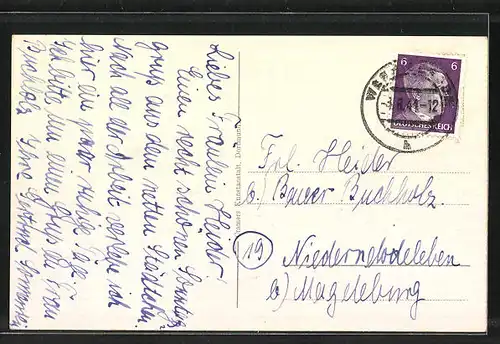 Liebes Fräulein Heider!
Einen recht schönen Sonntags-
gruß aus dem netten Städtchen.
Nach all der Arbeit verlebe ich
hier ein paar ruhige Tage.
Ich bitte, um einen Gruß an Frau
Buchholz. Ihre Gertrud
Kunstanstalt, Dortmund
6 6
DEUTSCHES REICH
44-12
b
Frl. Heider
b/ Bauer Buchholz.
19 Niederndodeleben
b) Magdeburg